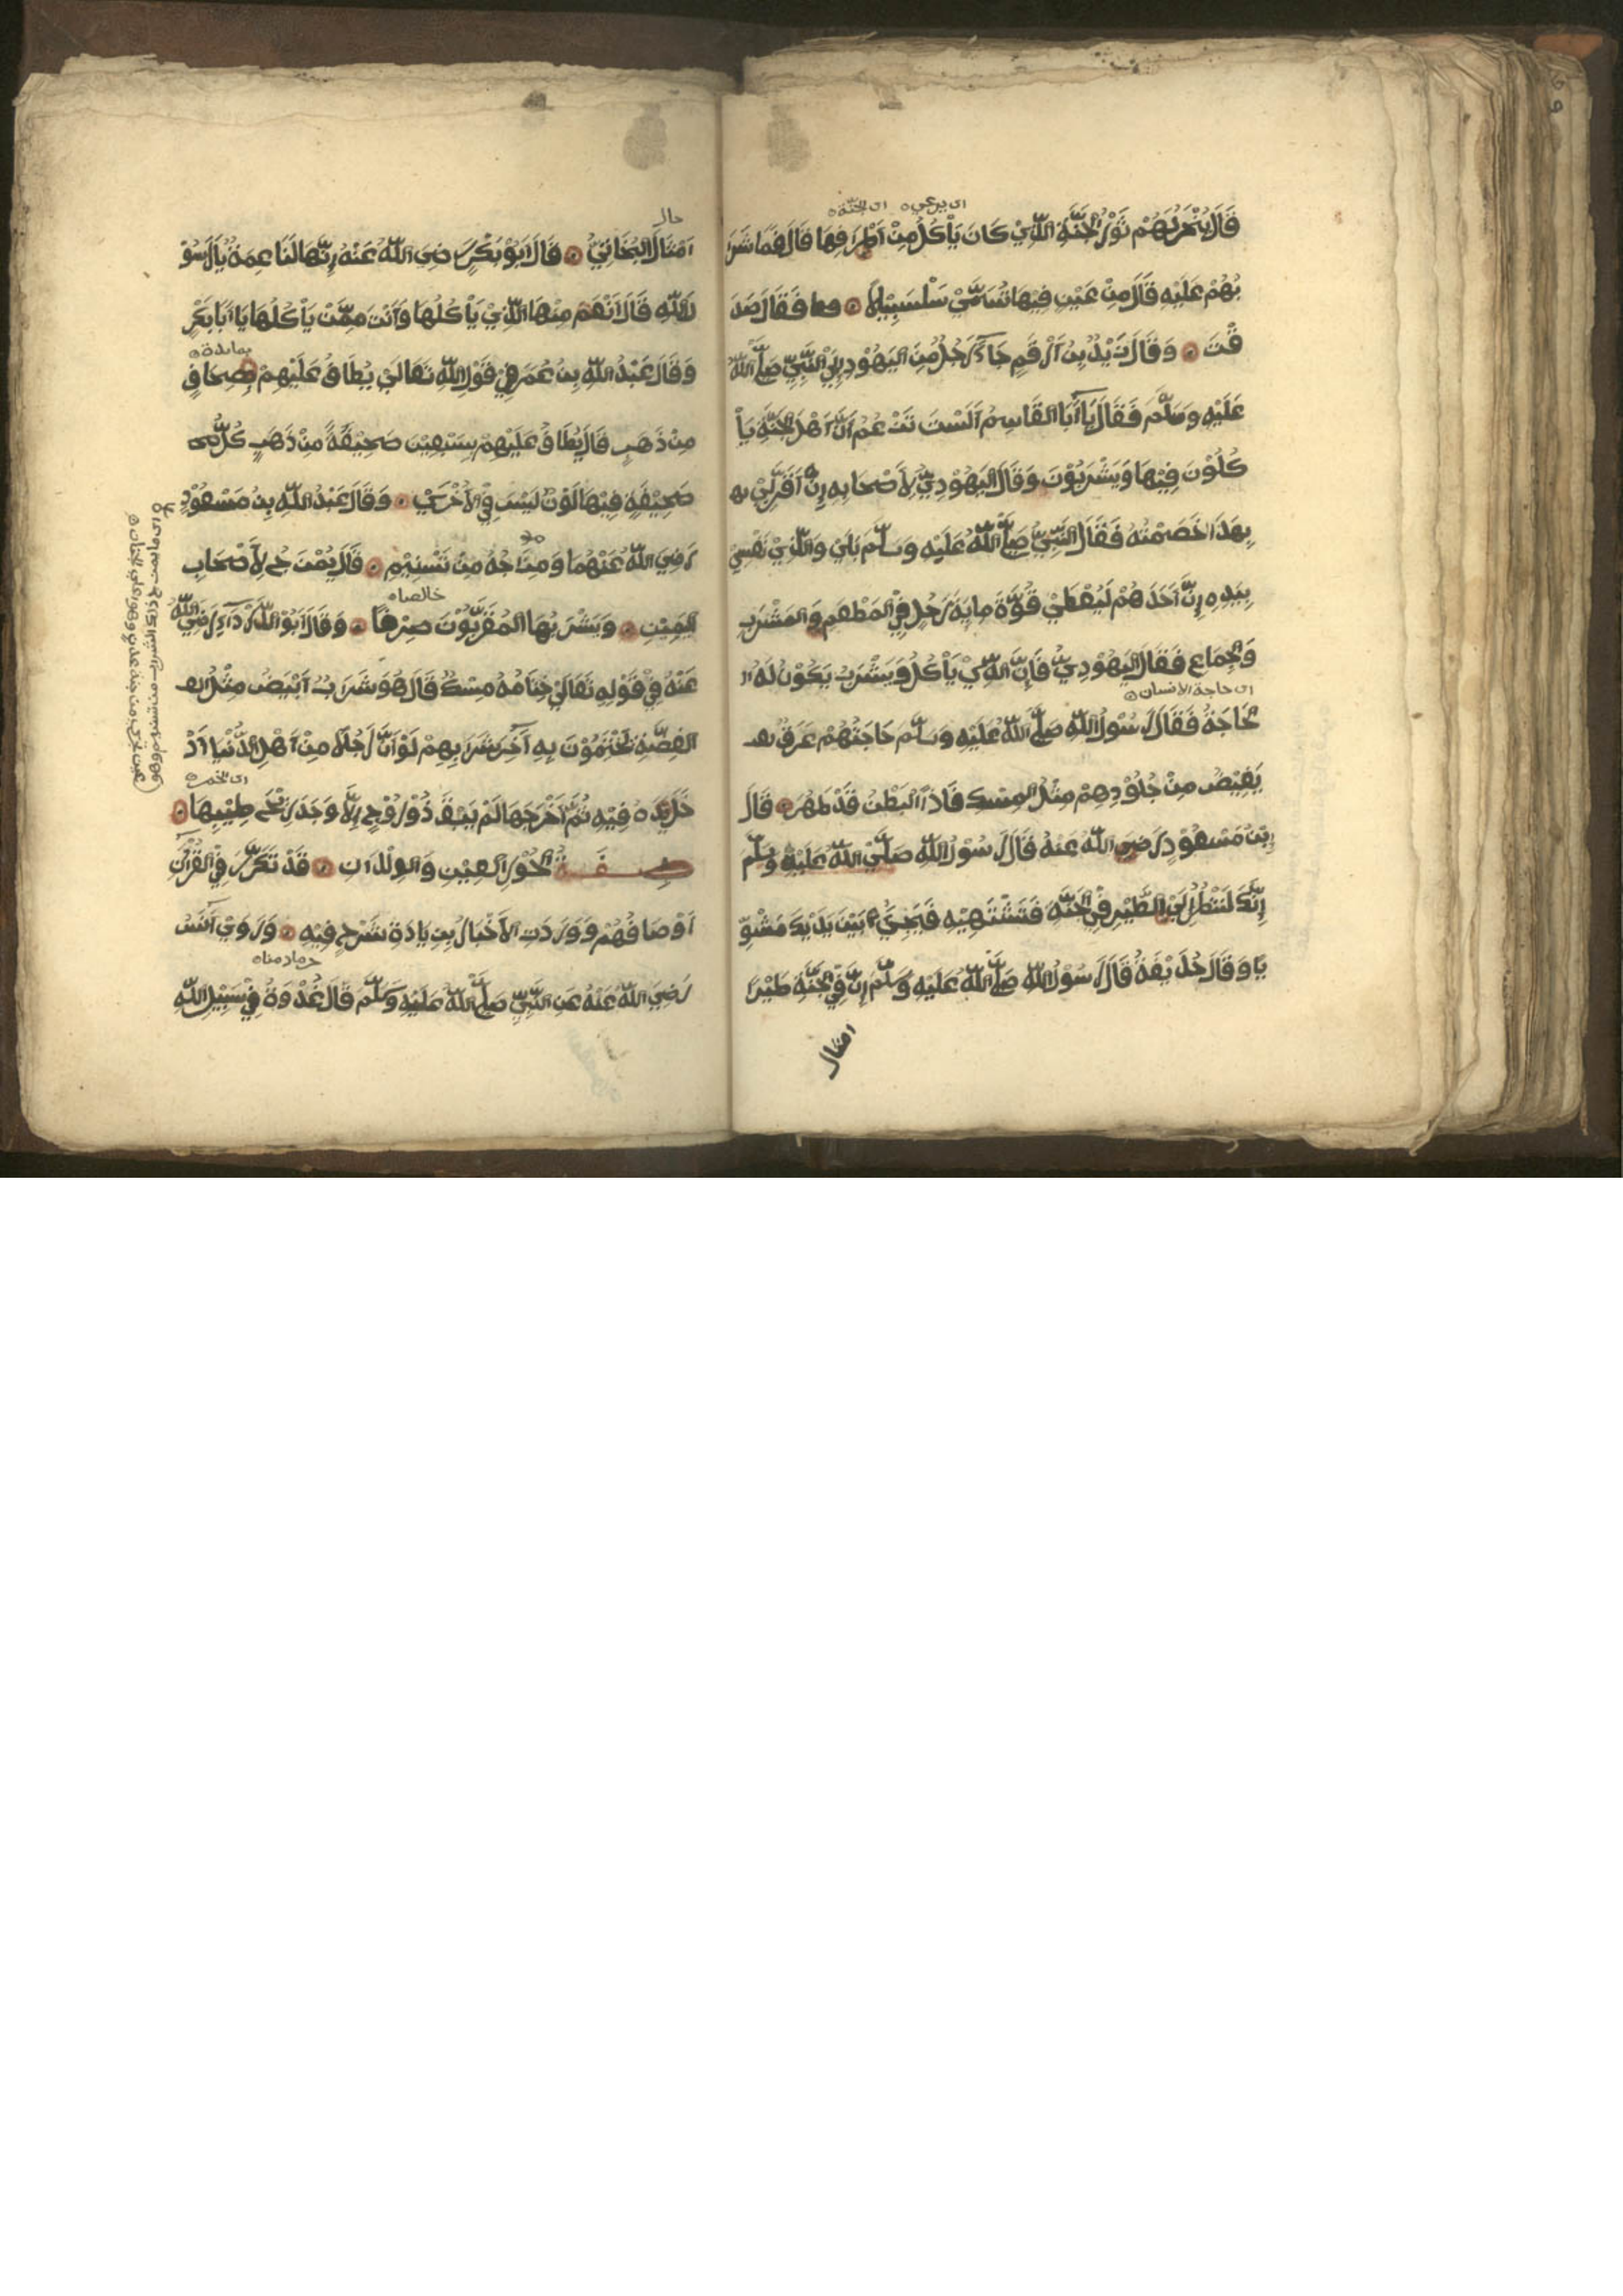 اى يرعى ه اى الجنة ه
قَالَ يُنْحَرُ لَهُمْ ثَوْرُ الْجَنَّةِ الَّذِيْ كَانَ يَأْكُلُ مِنْ اَطْرَافِهَا قَالَ فَمَا شَرَا
بُهُمْ عَلَيْهِ قَالَ مِنْ عَيْنٍ فِيْهَا تُسَمَّيْ سَلْسَبِيْلًا ۞ فَقَالَ صَدَ
قْتَ ۞ وَقَالَ زَيْدُ بِنُ اَرْقَمِ جَاءَ رَجُلٌ مِنَ الْيَهُوْدِ اِلَيْ النَّبِيِّ صَلَّ اللّٰهُ
عَلَيْهِ وَسَلَّمَ فَقَالَ يَا اَبَا الْقَاسِمِ اَلَسْتَ تَزْعُمُ اَنَّ اَهْلَ الْجَنَّةِ يَأْ
كُلُوْنَ فِيْهَا وَيَشْرَبُوْنَ وَقَالَ الْيَهُوْدِيُّ لِاَصْحَابِهِ اِنْ اَقَرَّ لِيْ
بِهَذَا خَصَمْتُهُ فَقَالَ النَّبِيُّ صَلَّ اللّٰهُ عَلَيْهِ وَسَلَّمَ بَلَيْ وَالَّذِيْ نَفْسِيْ
بِيَدِهِ اِنَّ اَحَدَهُمْ لَيُعْطَيْ قُوَّةَ مِايَةِ رَجُلٍ فِيْ الْمَطْعَمِ وَالْمَشْرَبِ
وَالْجِمَاعِ فَقَالَ الْيَهُوْدِيُّ فَاِنَّ الَّذِيْ يَأْكُلُ وَيَشْرَبُ يَكُوْنُ لَهُ ا
اى حاجة الانسان ه
لْحَاجَةُ فَقَالَ رَسُوْلُ اللّٰهِ صَلَّ اللّٰهُ عَلَيْهِ وَسَلَّمَ حَاجَتُهُمْ عَرَقٌ
يَفِيْضُ مِنْ جُلُوْدِهِمْ مِثْلُ الْمِسْكِ فَاِذَا الْبَطْنُ قَدْ ضَمُرَ ۞ قَالَ
اِبْنُ مَسْعُوْدٍ رَضِيَ اللّٰهُ عَنْهُ قَالَ رَسُوْلُ اللّٰهِ صَلَّيْ اللّٰهُ عَلَيْهِ وَسَلَّمَ
اِنَّكَ لَتَنْظُرُ اِلَيْ الطَّيْرِ فِيْ الْجَنَّةِ فَتَشْتَهِيْهِ فَيَجِيْءُ بَيْنَ يَدَيْكَ مَشْوِ
يًا وَقَالَ حُذَيْفَةُ قَالَ رَسُوْلُ اللّٰهِ صَلَّ اللّٰهُ عَلَيْهِ وَسَلَّمَ اِنَّ فِيْ الْجَنَّةِ طَيْرًا
امثال
حال
اَمْثَالَ الْبُخَاتِيِّ ۞ قَالَ اَبُوْ بَكْرٍ رَضِيَ اللّٰهُ عَنْهُ اِنَّهَا لَنَاعِمَةٌ يَا رَسُوْ
لَ اللّٰهِ قَالَ اَنْعَمُ مِنْهَا الَّذِيْ يَأْكُلُهَا وَاَنْتَ مِمَّنْ يَأْكُلُهَا يَا اَبَا بَكْرٍ
بمايدة ه
وَقَالَ عَبْدُ اللّٰهِ بِنُ عُمَرَ فِيْ قَوْلِ اللّٰهِ تَعَالَيْ يُطَافُ عَلَيْهِمْ بِصِحَافٍ
مِنْ ذَهَبٍ قَالَ يُطَافُ عَلَيْهِمْ بِسَبْعِيْنَ صَحِيْفَةً مِنْ ذَهَبٍ كُلُّ
صَحِيْفَةٍ فِيْهَا لَوْنٌ لَيْسَ فِيْ الْاُخْرَيْ ۞ وَقَالَ عَبْدُ اللّٰهِ بِنُ مَسْعُوْدٍ
رَضِيَ اللّٰهُ عَنْهُمَا وَمِزَاجُهُ مِنْ تَسْنِيْمٍ ۞ قَالَ يُمْزَجُ لِاَصْحَابِ
خالصا ه
الْيَمِيْنِ ۞ وَيَشْرَبُهَا الْمُقَرَّبُوْنَ صِرْفًا ۞ وَقَالَ اَبُوْ الدَّرْدَاءِ رَضِيَ اللّٰهُ
عَنْهُ فِيْ قَوْلِهِ تَعَالَيْ خِتَامُهُ مِسْكٌ قَالَ هُوَ شَرَابٌ اَبْيَضُ مِثْلُ
الْفِضَّةِ يَخْتِمُوْنَ بِهِ آخِرَ شَرَابِهِمْ لَوْ اَنَّ رَجُلًا مِنْ اَهْلِ الدُّنْيَا اَدْ
اى الخمر ه
خَلَ يَدَهُ فِيْهِ ثُمَّ اَخْرَجَهَا لَمْ يَبْقَ ذُوْ رُوْحٍ اِلَّا وَجَدَ رِيْحَ طِيْبِهَا ۞
صِفَةُ الْحُوْرِ الْعِيْنِ وَالْوِلْدَانِ ۞ قَدْ تَكَرَّرَ فِيْ الْقُرْآنِ
اَوْصَافُهُمْ وَوَرَدَتِ الْاَخْبَارُ بِزِيَادَةِ شَرْحٍ فِيْهِ ۞ وَرَوَيْ اَنَسٌ
رَضِيَ اللّٰهُ عَنْهُ عَنِ النَّبِيِّ صَلَّ اللّٰهُ عَلَيْهِ وَسَلَّمَ قَالَ غُدْوَةٌ فِيْ سَبِيْلِ اللّٰهِ
اى ما يمزج ذلك الشراب من تسنيم وهو
عين تجري من جنة عدن وهو اعلي الجنان ه